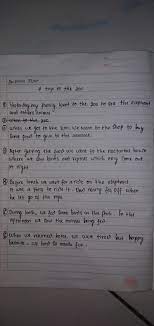 A trip to the zoo
① Yesterday my family went to the zoo to see the elephant
and other animal
② When we got to the zoo, we went to the shop to buy
some food to give to the animals
③ After getting the food we went to the nocturnal house
where we saw birds and reptiles which only come out
at night
④ Before lunch we went for a ride on the elephant
It was a thrill to ride it. Dad nearly fell off when
he let go of the rope
⑤ During lunch, we fed some birds in the park. In the
afternoon we saw the animals being fed
⑥ When we returned home, we were tired but happy
because we had so much fun